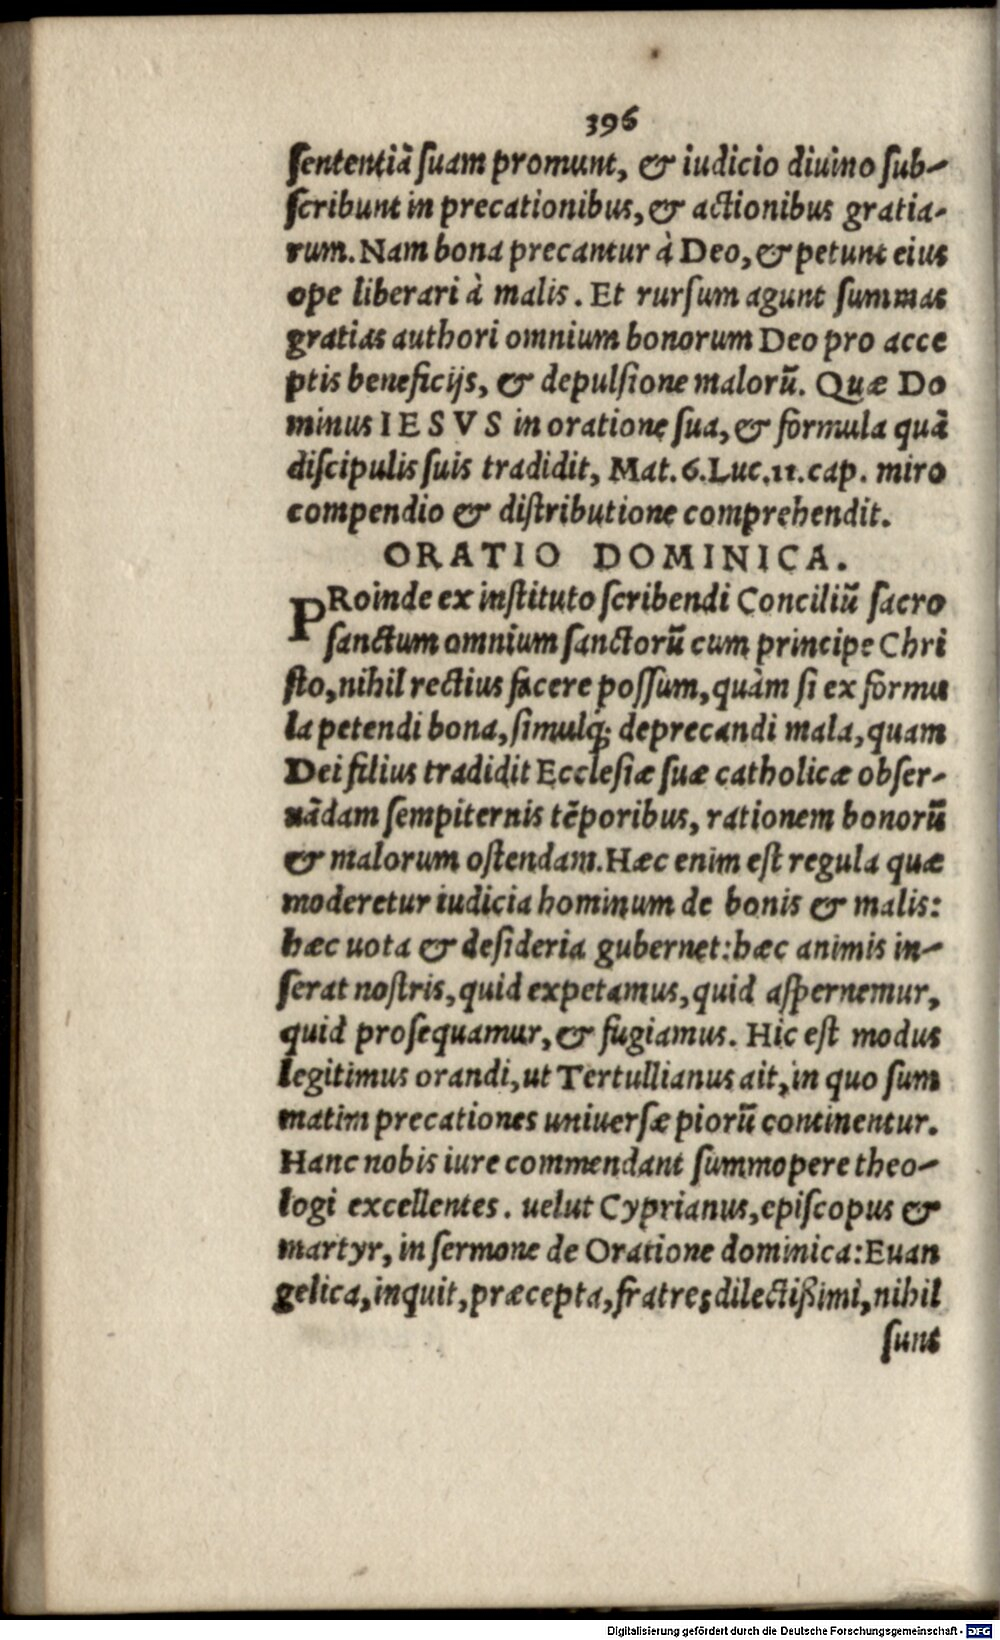 396
ſententiã ſuam promunt, & iudicio diuino ſub-
ſcribunt in precationibus, & actionibus gratia-
rum. Nam bona precantur à Deo, & petunt eius
ope liberari à malis. Et rurſum agunt ſummas
gratias authori omnium bonorum Deo pro acce
ptis beneficijs, & depulſione malorũ. Quæ Do
minus IESVS in oratione ſua, & formula quã
diſcipulis ſuis tradidit, Mat. 6. Luc. 11. cap. miro
compendio & diſtributione comprehendit.
ORATIO DOMINICA.
PRoinde ex inſtituto ſcribendi Conciliũ ſacro
ſanctum omnium ſanctorũ cum principe Chri
ſto, nihil rectius facere poſſum, quàm ſi ex formu
la petendi bona, ſimulq; deprecandi mala, quam
Dei filius tradidit Eccleſiæ ſuæ catholicæ obſer-
uãdam ſempiternis tẽporibus, rationem bonorũ
& malorum oſtendam. Hæc enim eſt regula quæ
moderetur iudicia hominum de bonis & malis:
hæc uota & deſideria gubernet: hæc animis in-
ſerat noſtris, quid expetamus, quid aſpernemur,
quid proſequamur, & fugiamus. Hic eſt modus
legitimus orandi, ut Tertullianus ait, in quo ſum
matim precationes uniuerſæ piorũ continentur.
Hanc nobis iure commendant ſummopere theo-
logi excellentes. uelut Cyprianus, epiſcopus &
martyr, in ſermone de Oratione dominica: Euan
gelica, inquit, præcepta, fratres dilectißimi, nihil
ſunt
Digitalisierung gefördert durch die Deutsche Forschungsgemeinschaft - DFG